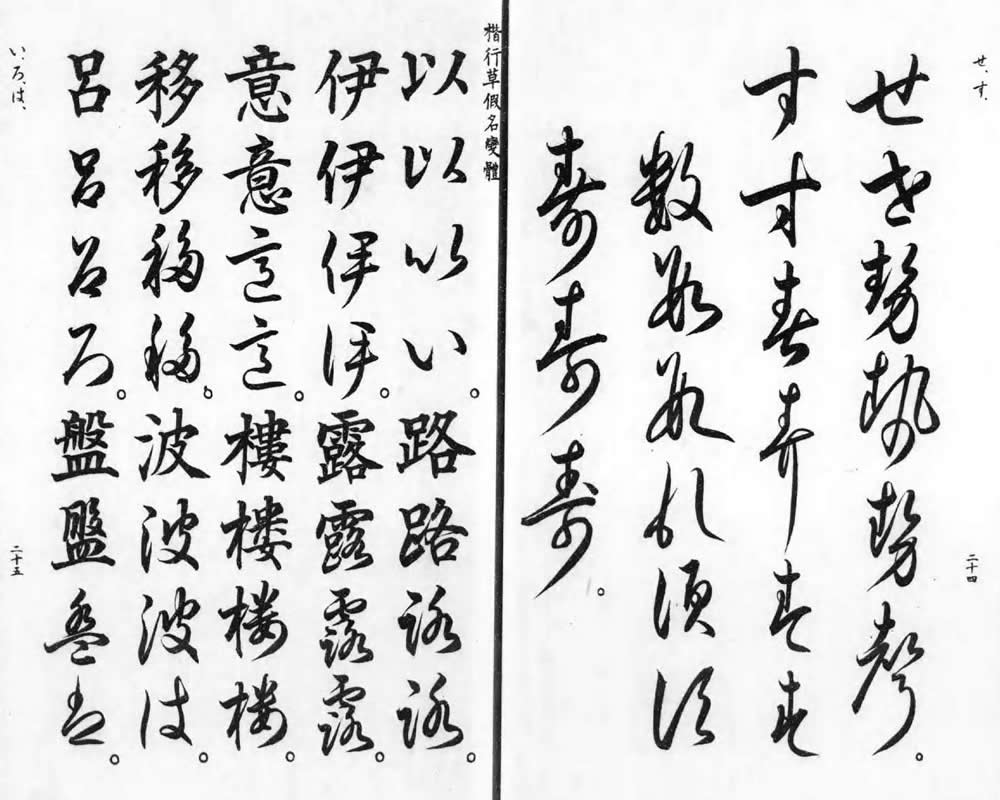 せ、す、
二十四
せせ勢勢勢聲。
すす春春すす
數数数須須
壽壽壽。
楷行草假名變體
以以以い。路路路路。
伊伊伊伊。露露露露。
意意意意。樓樓楼楼。
移移移移。波波波は。
呂呂呂ろ。盤盤盤。
い、ろ、は、
二十五